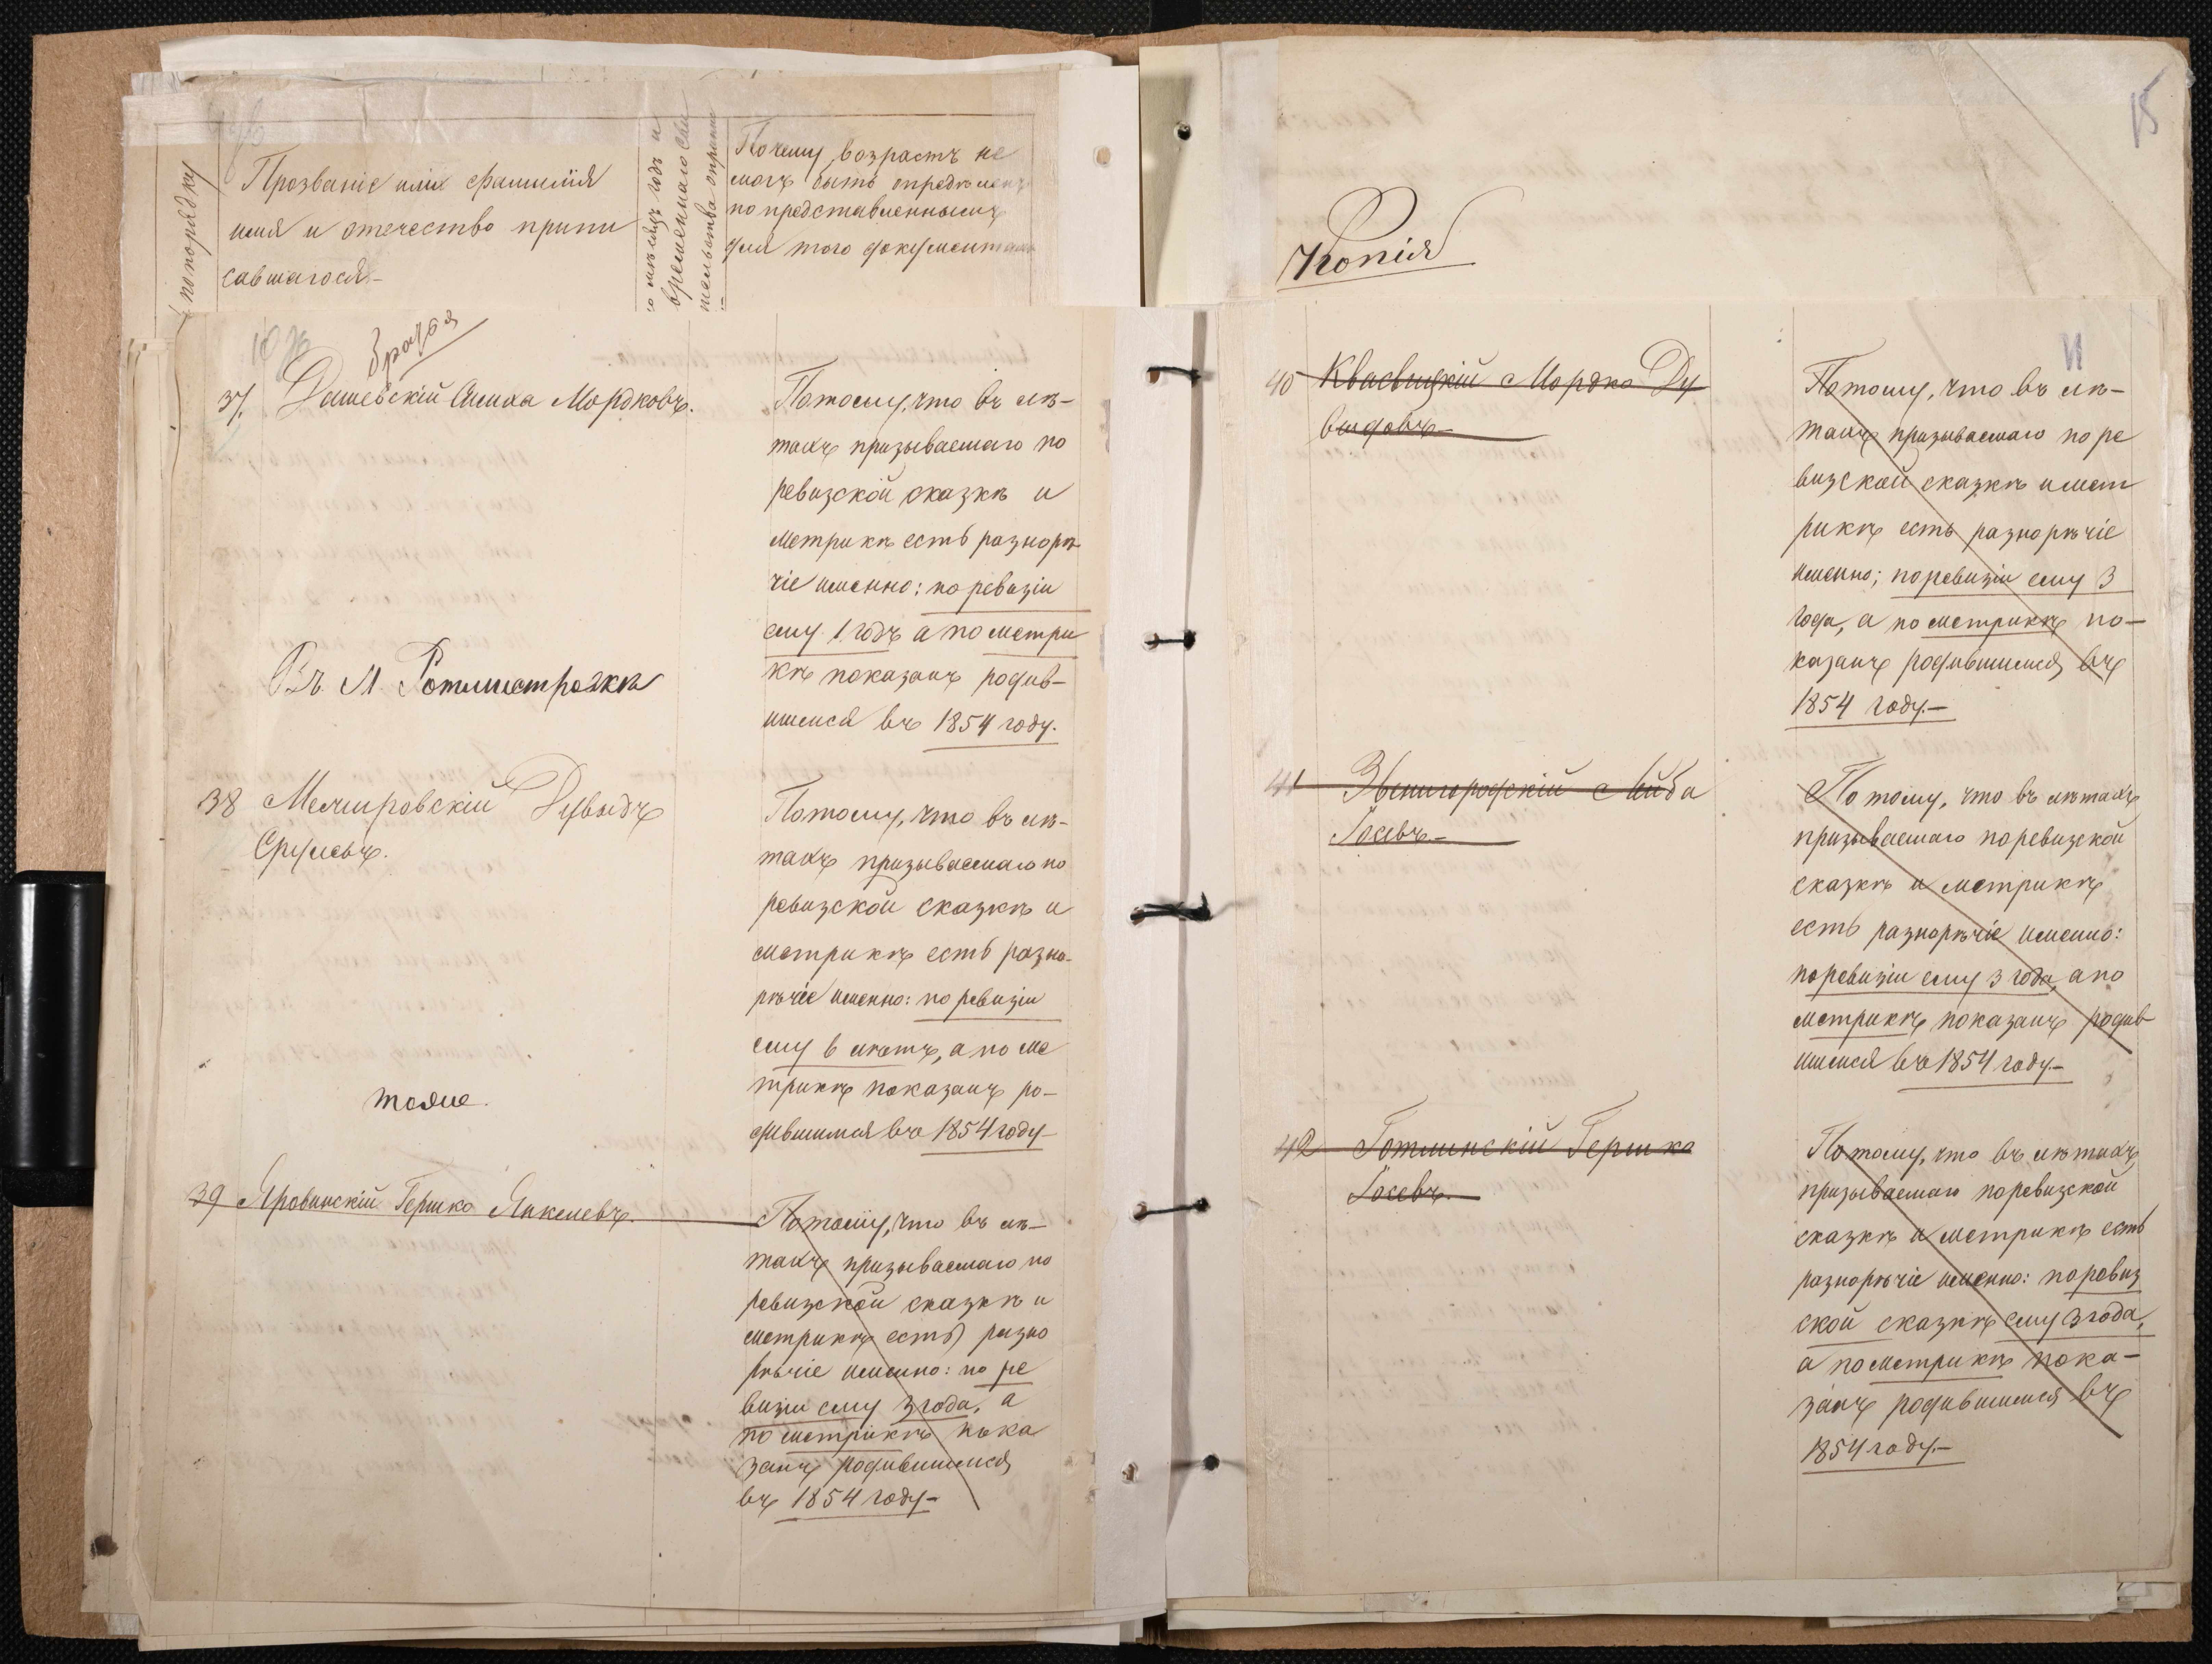 № по порядку
Прозваніе или фамилія
имя и отечество припи
савшагося-
Почему возрастъ не
могъ быть опредѣленъ
по представленнымъ
для того документамъ
37. Дашевскій Симха Мордковъ.
Потому, что въ лѣ-
тахъ призываемаго по
ревизской сказкѣ и
метрикѣ есть разнорѣ
чіе именно: по ревизіи
ему 1 годъ а по метри
кѣ показанъ родив-
шимся въ 1854 году.
Въ М. Ротмистровкѣ
38 Мечировскій Дувидъ
Срулевъ.
Потому, что въ лѣ-
тахъ призываемаго по
ревизской сказкѣ и
метрикѣ есть разно-
рѣчіе именно: по ревизіи
ему 6 лѣтъ, а по ме
трикѣ показанъ ро-
дившимся въ 1854 году-
тоже.
39 Яровинскій Гершко Янкелевъ.
Потому, что въ лѣ-
тахъ призываемаго по
ревизской сказкѣ и
метрикѣ есть разно
рѣчіе именно: по ре
визіи ему 3 года, а
по метрикѣ пока
занъ родившимся
въ 1854 году-
15
Копія
40 Квасницкій Мордко Ду
видовъ-
Потому, что въ лѣ-
тахъ призываемаго по ре
визской сказкѣ и мет
рикѣ есть разнорѣчіе
именно; по ревизіи ему 3
года, а по метрикѣ по-
казанъ родившимся въ
1854 году.-
41 Звенигородскій Лейба
Іосевъ-
Потому, что въ лѣтахъ
призываемаго по ревизской
сказкѣ и метрикѣ
есть разнорѣчіе именно:
по ревизіи ему 3 года, а по
метрикѣ показанъ родив
шимся въ 1854 году.-
42 Готлинскій Гершко
Іосевъ.
Потому, что въ лѣтахъ
призываемаго по ревизской
сказкѣ и метрикѣ есть
разнорѣчіе именно: по ревиз
ской сказкѣ ему 3 года,
а по метрикѣ пока-
занъ родившимся въ
1854 году.-